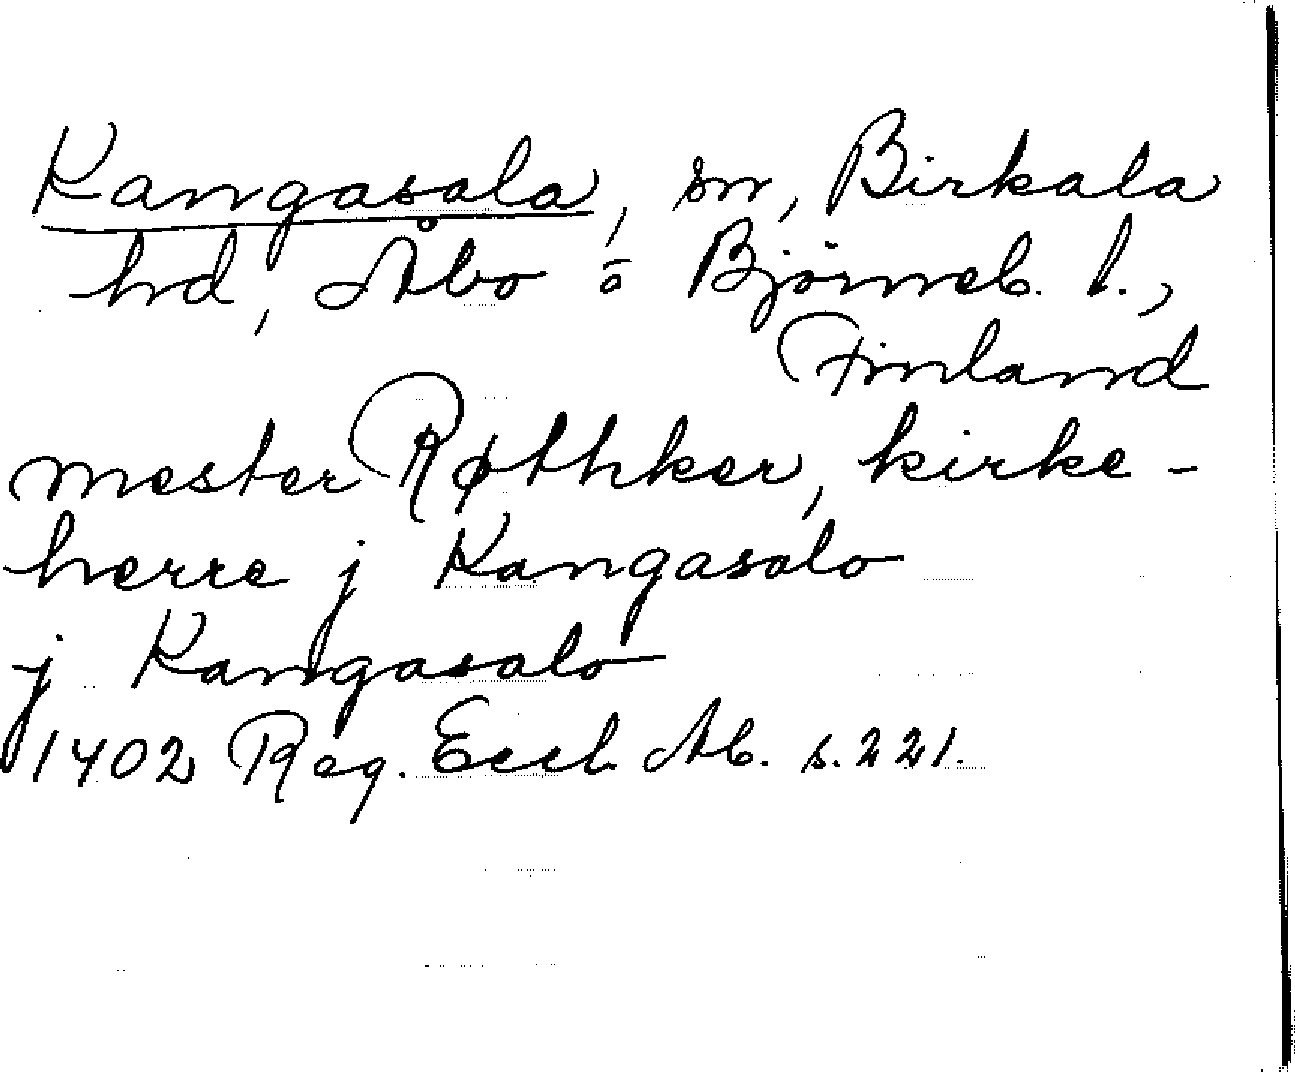 Kangasala, sn, Birkala
hd, Åbo o Björneb. l.,
Finland
mester Røthker, kirke-
herre j Kangasalo
j Kangasalo
1402 Reg. Eccl. Ab. s. 221.